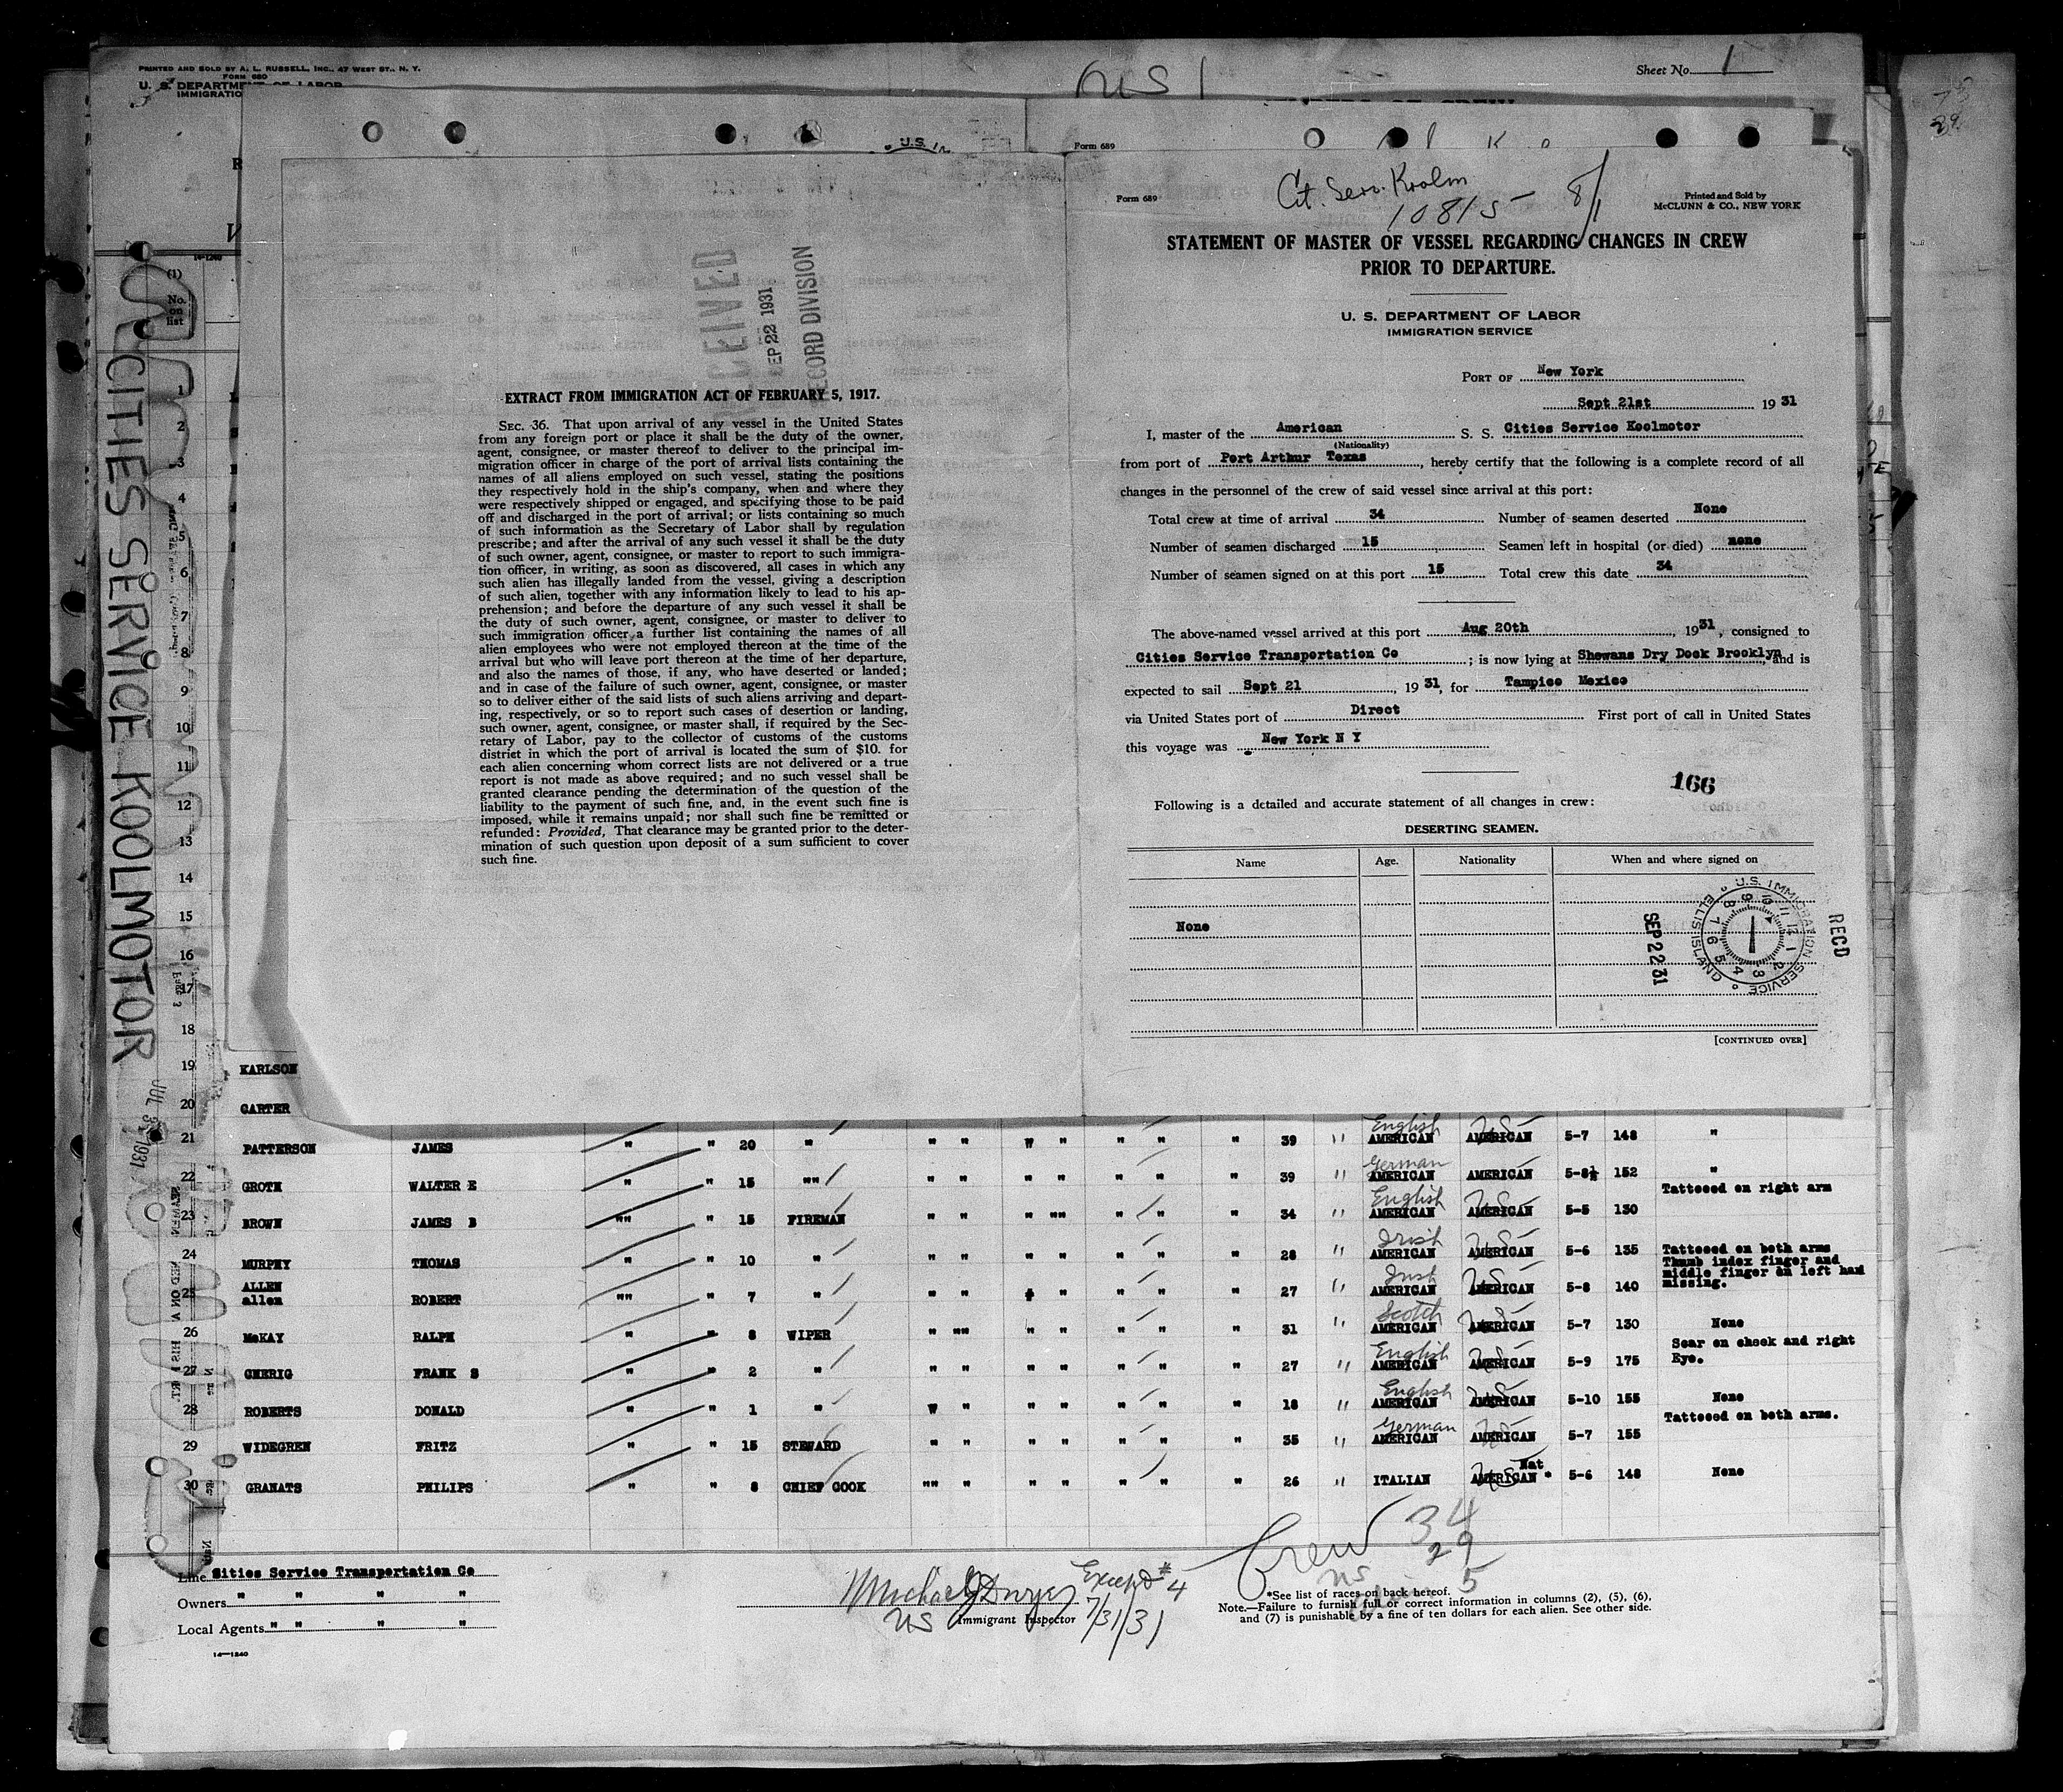 PRINTED AND SOLD BY A. L. RUSSELL, INC., 47 WEST ST., N. Y.
FORM 680
U. S. DEPARTMENT OF LABOR
IMMIGRATIO
Sheet No. 1
US 1
Form 689
Form 689
Cit. Serv. Koolm
10815 8/1
Printed and Sold by
McCLUNN & CO., NEW YORK
STATEMENT OF MASTER OF VESSEL REGARDING CHANGES IN CREW
PRIOR TO DEPARTURE.
U. S. DEPARTMENT OF LABOR
IMMIGRATION SERVICE
PORT OF New York
Sept 21st 19 31
I, master of the American S. S. Cities Service Koolmotor
(Nationality)
from port of Port Arthur Texas, hereby certify that the following is a complete record of all
changes in the personnel of the crew of said vessel since arrival at this port:
Total crew at time of arrival 34 Number of seamen deserted None
Number of seamen discharged 15 Seamen left in hospital (or died) none
Number of seamen signed on at this port 15 Total crew this date 34
The above-named vessel arrived at this port Aug 20th, 1931, consigned to
Cities Service Transportation Co; is now lying at Shewans Dry Dock Brooklyn, and is
expected to sail Sept 21, 19 31, for Tampico Mexico
via United States port of Direct First port of call in United States
this voyage was New York N Y
166
Following is a detailed and accurate statement of all changes in crew:
DESERTING SEAMEN.
Name Age. Nationality When and where signed on
None
U.S. IMMIGRATION SERVICE ELLIS ISLAND
SEP 22 31
RECD
[CONTINUED OVER]
RECEIVED
SEP 22 1931
RECORD DIVISION
EXTRACT FROM IMMIGRATION ACT OF FEBRUARY 5, 1917.
SEC. 36. That upon arrival of any vessel in the United States
from any foreign port or place it shall be the duty of the owner,
agent, consignee, or master thereof to deliver to the principal im-
migration officer in charge of the port of arrival lists containing the
names of all aliens employed on such vessel, stating the positions
they respectively hold in the ship's company, when and where they
were respectively shipped or engaged, and specifying those to be paid
off and discharged in the port of arrival; or lists containing so much
of such information as the Secretary of Labor shall by regulation
prescribe; and after the arrival of any such vessel it shall be the duty
of such owner, agent, consignee, or master to report to such immigra-
tion officer, in writing, as soon as discovered, all cases in which any
such alien has illegally landed from the vessel, giving a description
of such alien, together with any information likely to lead to his ap-
prehension; and before the departure of any such vessel it shall be
the duty of such owner, agent, consignee, or master to deliver to
such immigration officer a further list containing the names of all
alien employees who were not employed thereon at the time of the
arrival but who will leave port thereon at the time of her departure,
and also the names of those, if any, who have deserted or landed;
and in case of the failure of such owner, agent, consignee, or master
so to deliver either of the said lists of such aliens arriving and depart-
ing, respectively, or so to report such cases of desertion or landing,
such owner, agent, consignee, or master shall, if required by the Sec-
retary of Labor, pay to the collector of customs of the customs
district in which the port of arrival is located the sum of $10. for
each alien concerning whom correct lists are not delivered or a true
report is not made as above required; and no such vessel shall be
granted clearance pending the determination of the question of the
liability to the payment of such fine, and, in the event such fine is
imposed, while it remains unpaid; nor shall such fine be remitted or
refunded: Provided, That clearance may be granted prior to the deter-
mination of such question upon deposit of a sum sufficient to cover
such fine.
CITIES SERVICE KOOLMOTOR
JUL 31 1931
14-1240
(1)
No.
on
list
1
2
3
4
5
6
7
8
9
10
11
12
13
14
15
16
17
18
19 KARLSON
20 CARTER
21 PATTERSON JAMES " " 20 " " " W " " " " 39 " English AMERICAN US AMERICAN 5-7 148 "
22 GROTH WALTER E " " 15 "" " " " " " " " 39 " German AMERICAN AMERICAN 5-8½ 152 "
23 BROWN JAMES B "" " 15 FIREMAN " " " "" " " " 34 " English AMERICAN US AMERICAN 5-5 130 Tattooed on right arm
24 MURPHY THOMAS " " 10 " " " " " " " " 28 " Irish AMERICAN US AMERICAN 5-6 135 Tattooed on both arms
Thumb index finger and
middle finger on left hand
missing.
25 ALLEN
allen ROBERT "" " 7 " " " " " " " 27 " Irish AMERICAN US AMERICAN 5-8 140
26 McKAY RALPH " " 8 WIPER " "" " " " " " 31 " Scotch AMERICAN US AMERICAN 5-7 130 None
27 GHERIG FRANK S " " 2 " " " " " " " " 27 " English AMERICAN US AMERICAN 5-9 175 Scar on cheek and right
Eye.
28 ROBERTS DONALD " " 1 " W " " " " " " 18 " English AMERICAN US AMERICAN 5-10 155 None
29 WIDEGREN FRITZ " " 15 STEWARD " " " " " " " 35 " German AMERICAN US AMERICAN 5-7 155 Tattooed on both arms.
30 GRANATS PHILIPS " " 8 CHIEF COOK "" " " " " " " 26 " ITALIAN US AMERICAN Nat 5-6 148 None
Crew 34
US 29
5
Line Cities Service Transportation Co
Owners " " " "
Local Agents " " " "
14—1240
Except #4
US Immigrant Inspector 7/31/31
*See list of races on back hereof.
Note.—Failure to furnish full or correct information in columns (2), (5), (6),
and (7) is punishable by a fine of ten dollars for each alien. See other side.